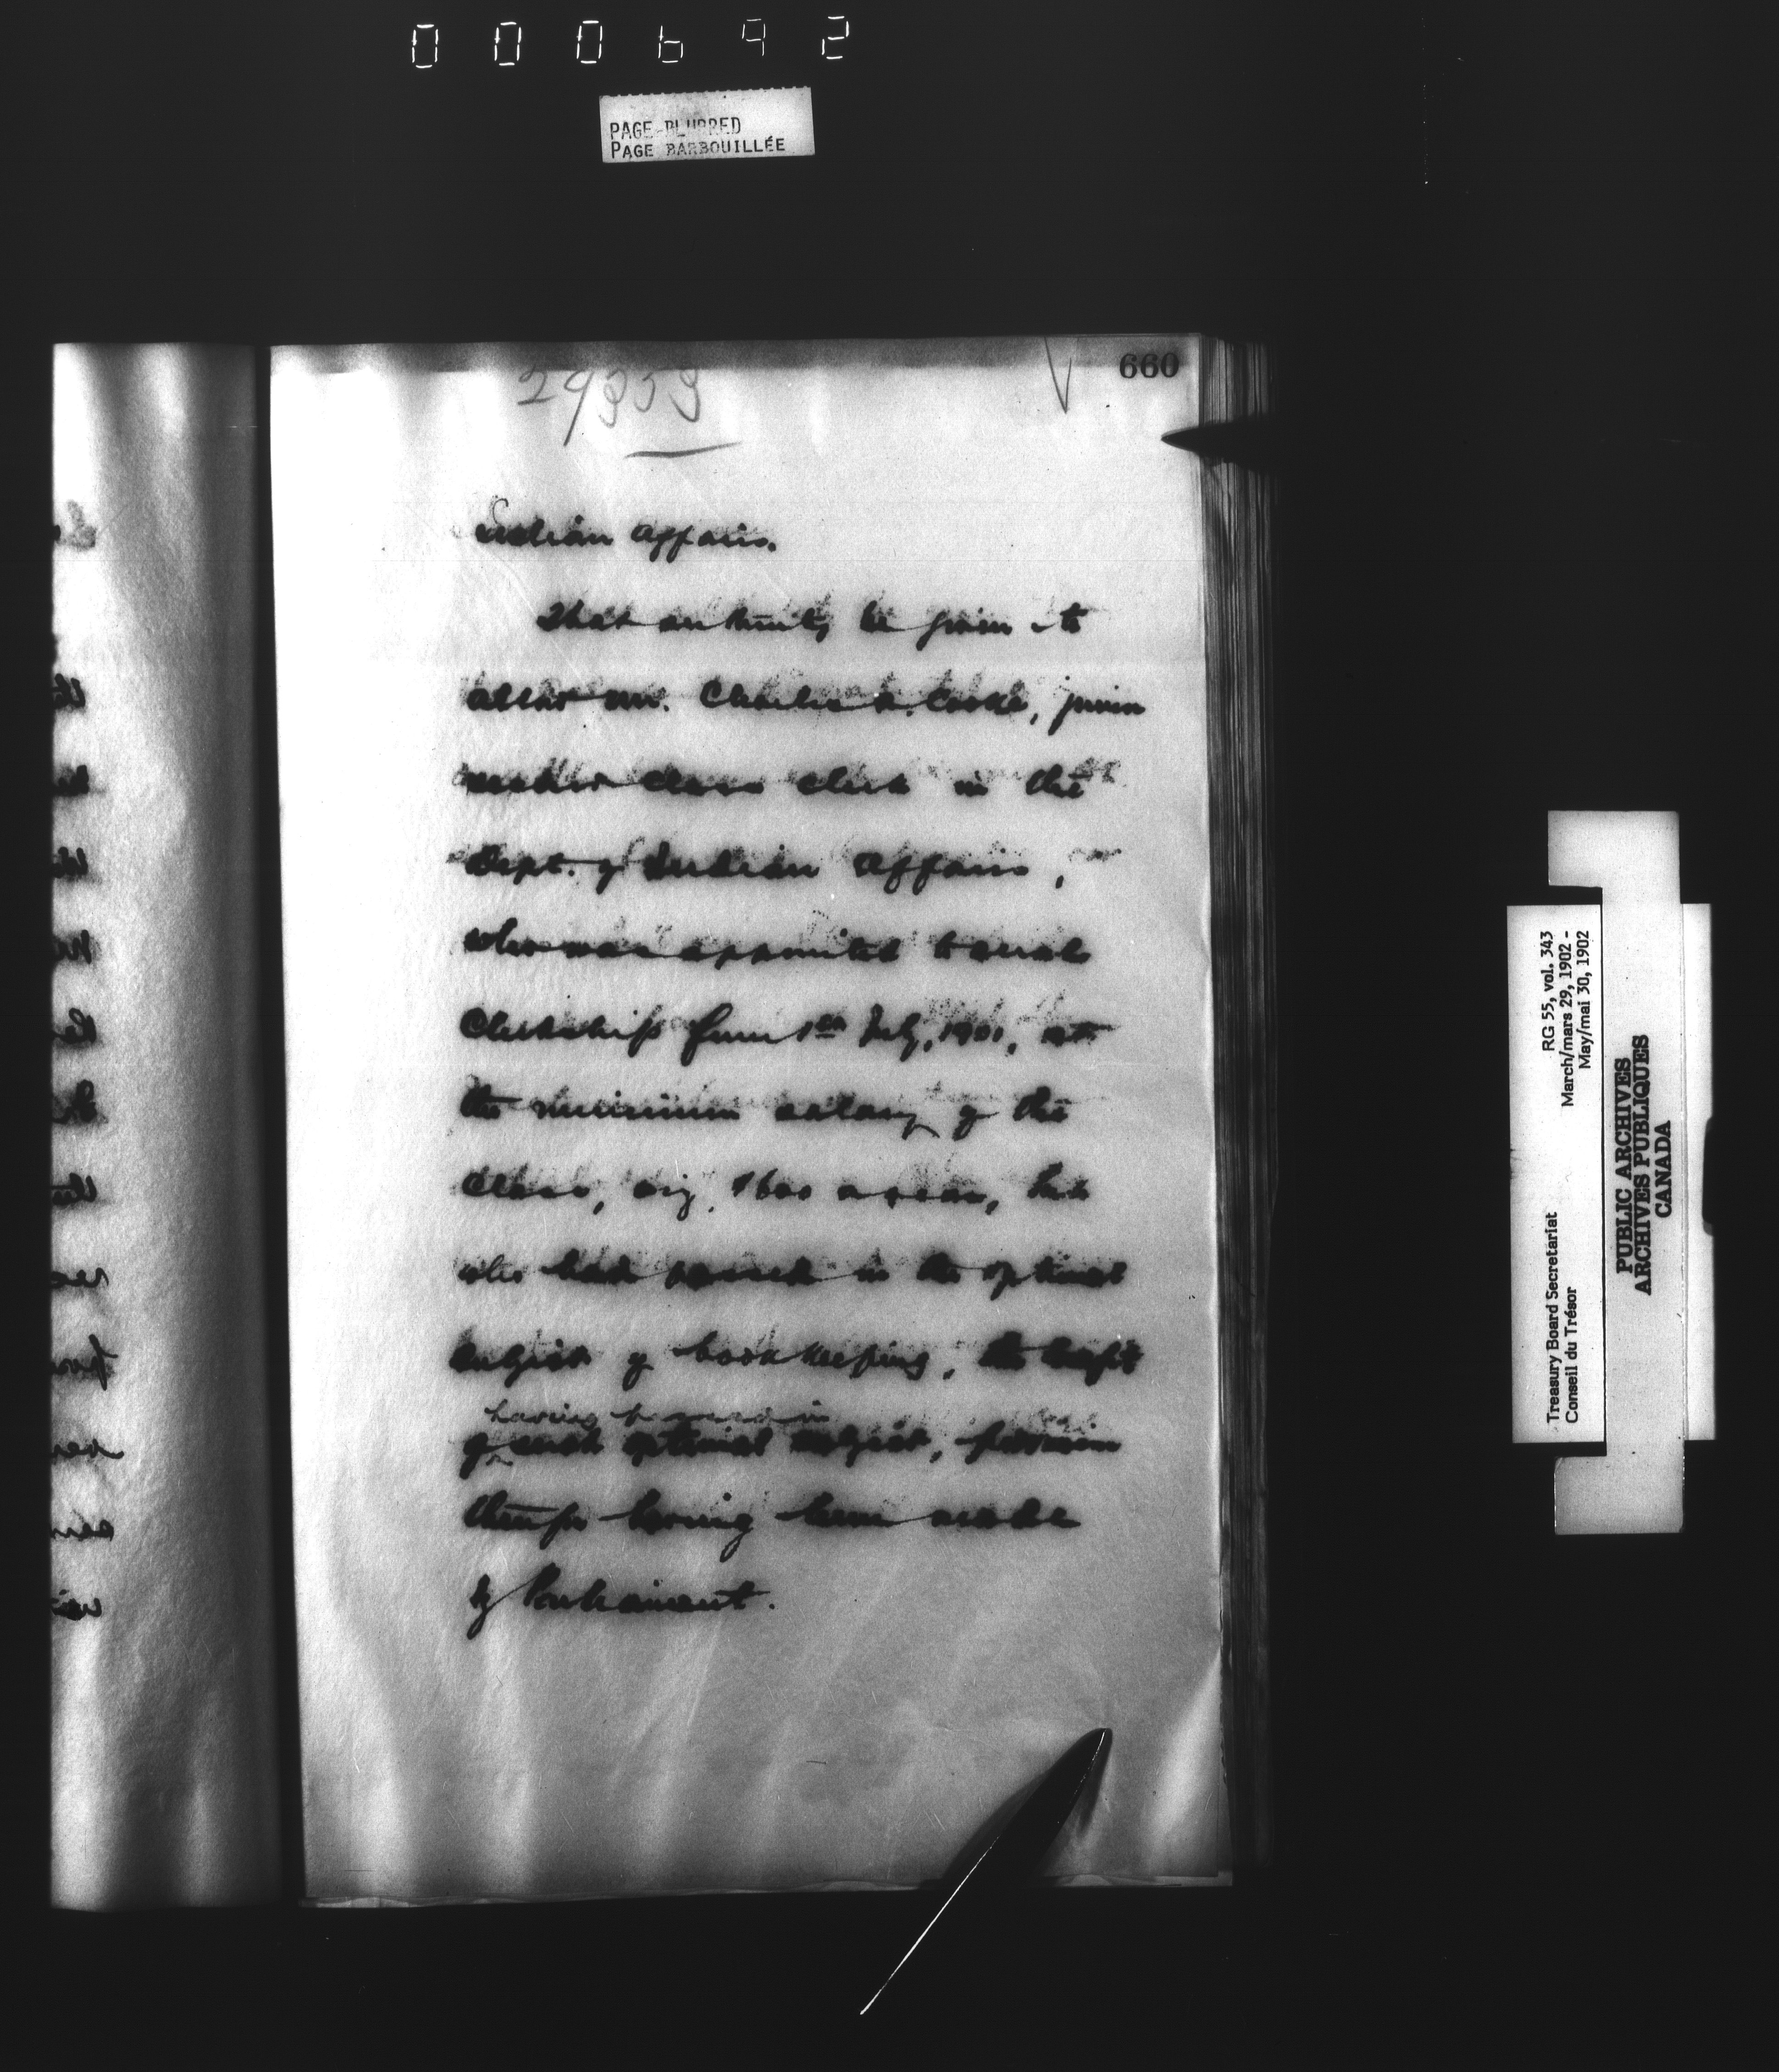 000692
PAGE BLURRED
PAGE BARBOUILLÉE
660
29353
Indian Affairs.
That authority be given to
allow Mr. Charles A. Cooke, junior
second class clerk in the
Dept. of Indian Affairs,
who was appointed to such
Clerkship from 1st July, 1901, at
the minimum salary of the
Class, viz. $600 a year, but
who had passed in the optional
subject of bookkeeping, the benefit
having passed in
of such optional subject, provision
therefor having been made
by Parliament.
RG 55, vol. 343
March/mars 29, 1902 -
May/mai 30, 1902
Treasury Board Secretariat
Conseil du Trésor
PUBLIC ARCHIVES
ARCHIVES PUBLIQUES
CANADA